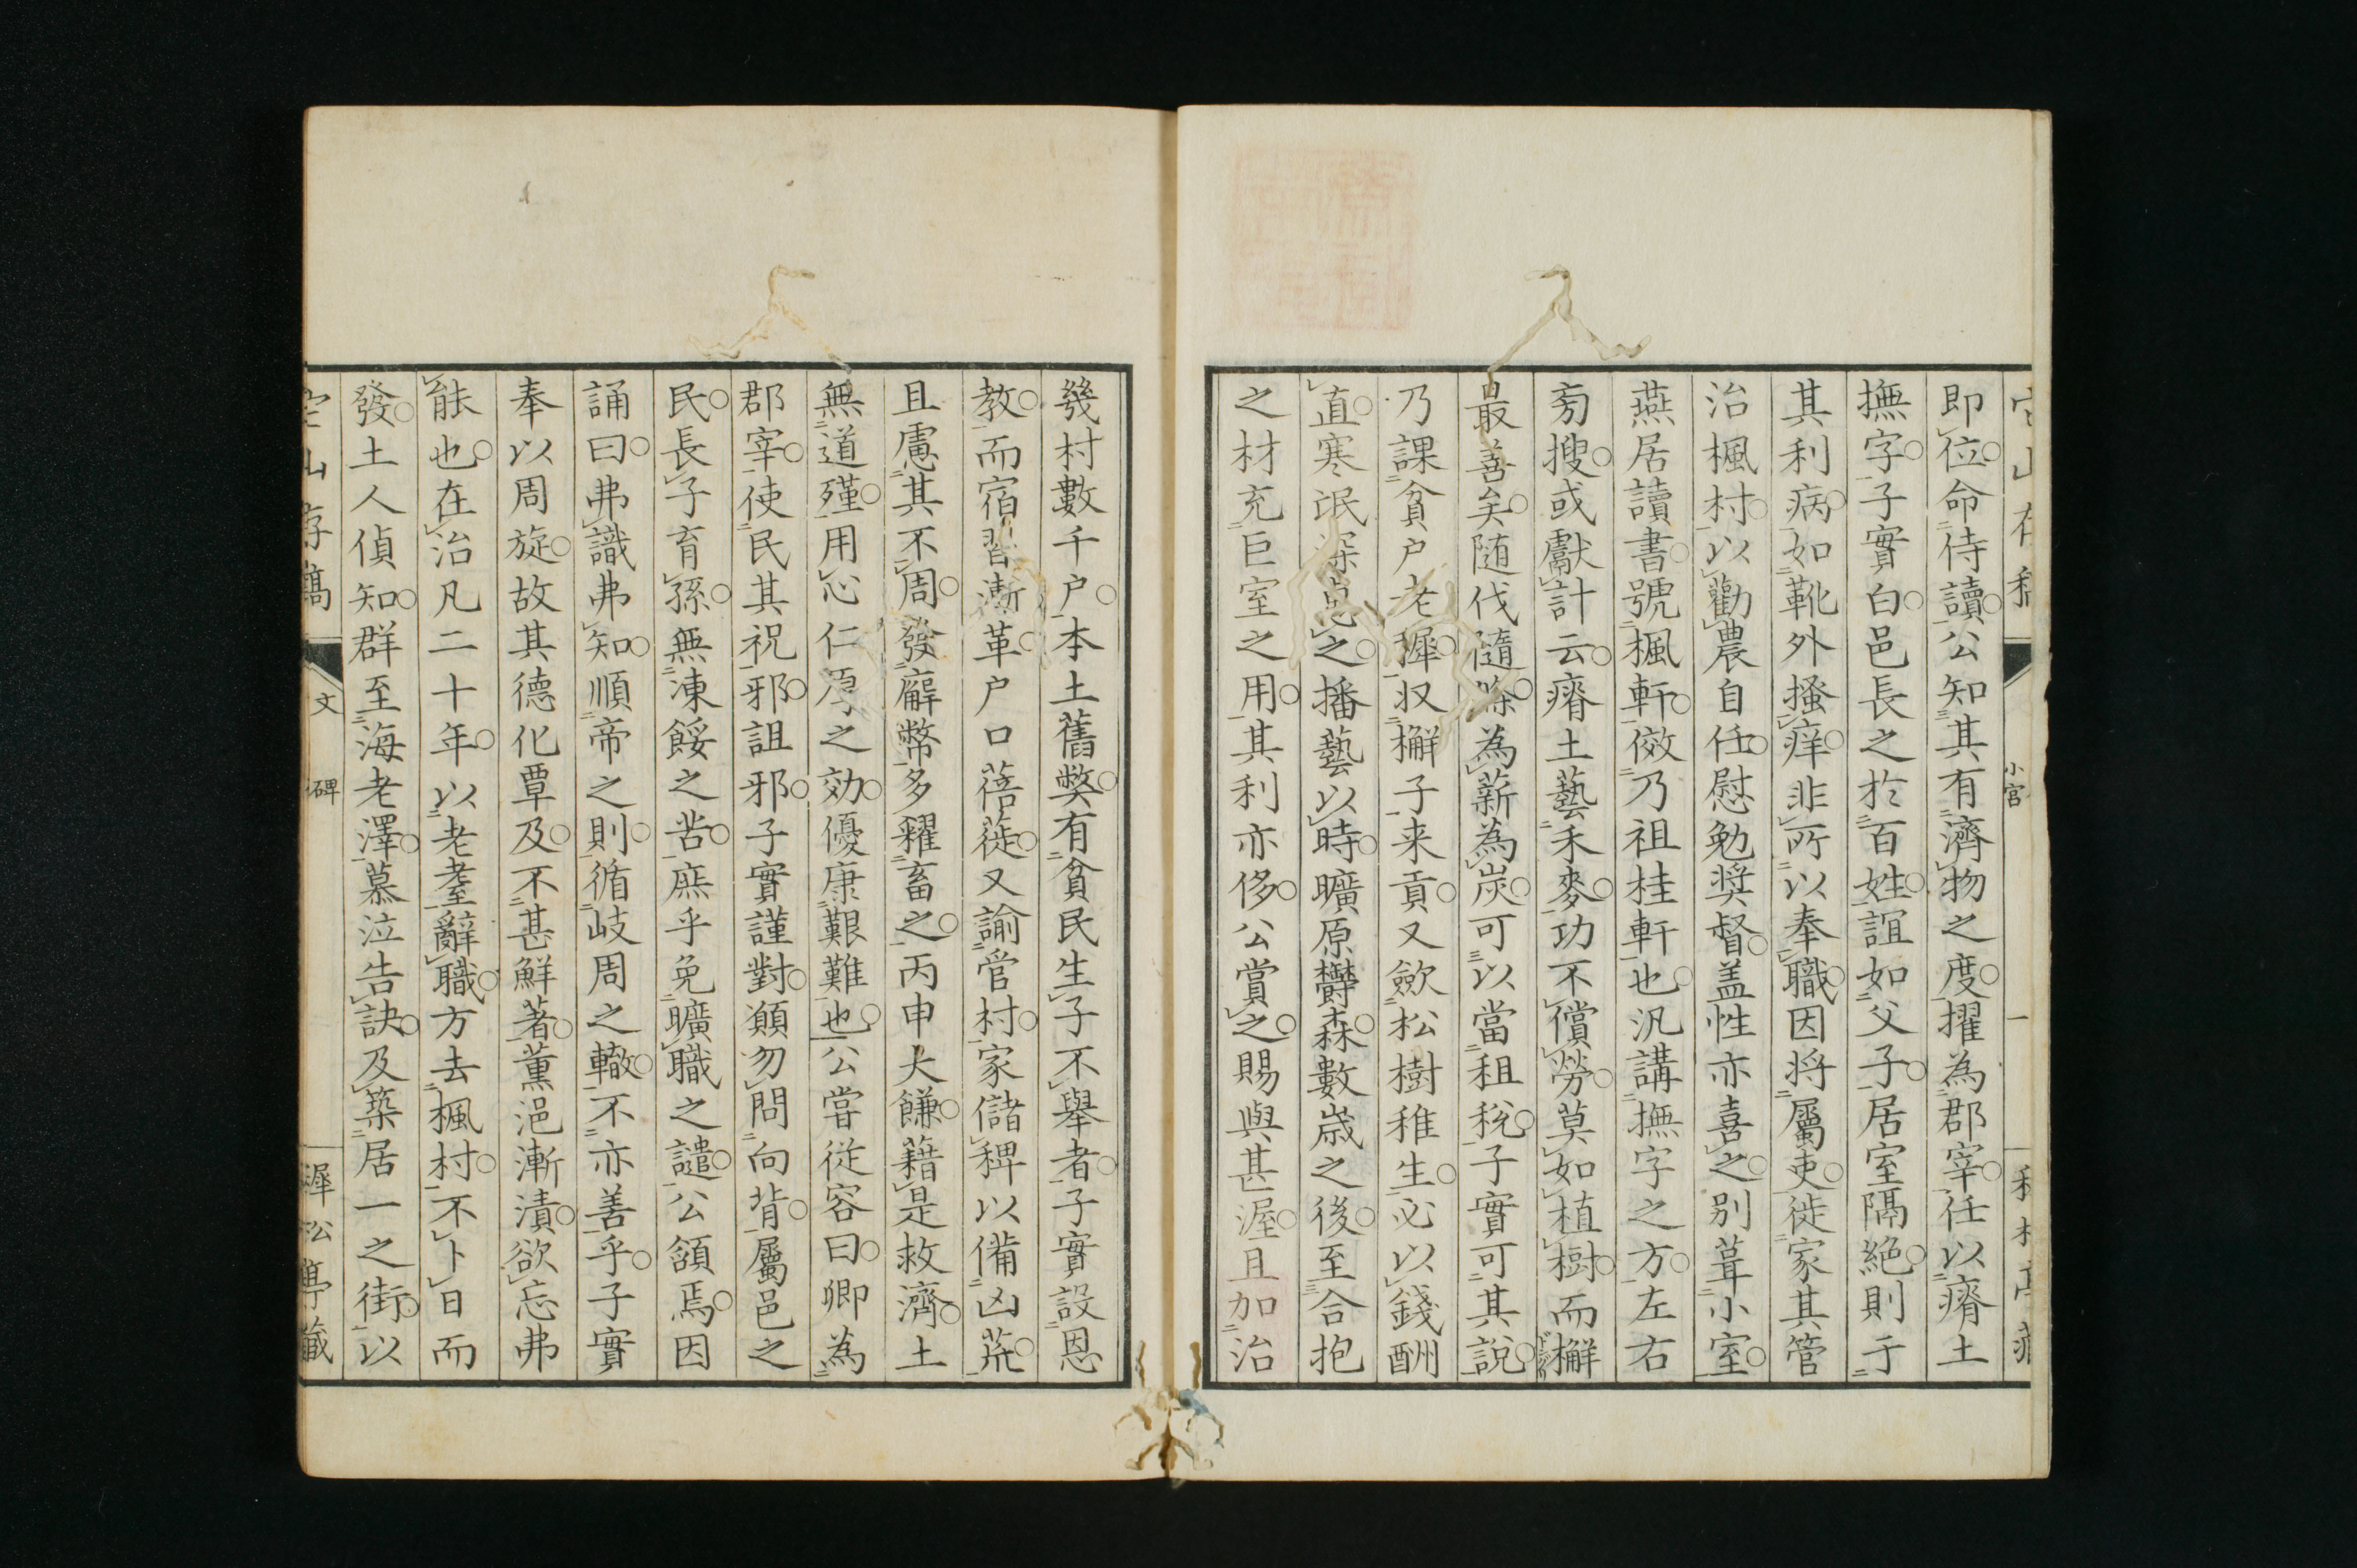 即位命侍讀公知其有濟物之度擢為郡宰任以瘠土
撫字子實白邑長之於百姓誼如父子居室隔絶則于
其利病如靴外搔痒非所以奉職因将屬吏徙家其管
治楓村以勸農自任慰勉奨督盖性亦喜之别葺小室
燕居讀書號楓軒倣乃祖桂軒也汎講撫字之方左右
旁搜或獻計云瘠土藝禾麥功不償勞莫如植樹而檞
最善矣随伐隨滌為薪為炭可以當租税子實可其說
乃課貧户老穉収檞子来貢又歛松樹稚生必以錢酬
直寒氓深恖之播藝以時曠原欝森數歳之後至合抱
之材充巨室之用其利亦侈公賞之賜與甚渥且加治
幾村數千户本土舊弊有貧民生子不舉者子實設恩
教而宿習漸革户口蓓蓰又諭管村家儲稗以備凶荒
且慮其不周發廨幣多糴畜之丙申大饑藉是救濟土
無道殣用心仁厚之効優康艱難也公嘗従容曰卿為
郡宰使民其祝邪詛邪子實謹對願勿問向背屬邑之
民長子育孫無凍餒之苦庶乎免曠職之譴公頷焉因
誦曰弗識弗知順帝之則循岐周之轍不亦善乎子實
奉以周旋故其德化覃及不甚鮮著薫浥漸漬欲忘弗
能也在治凡二十年以老耋辭職方去楓村不卜日而
發土人偵知群至海老澤慕泣告訣及築居一之街以
文
碑
穉松亭藏